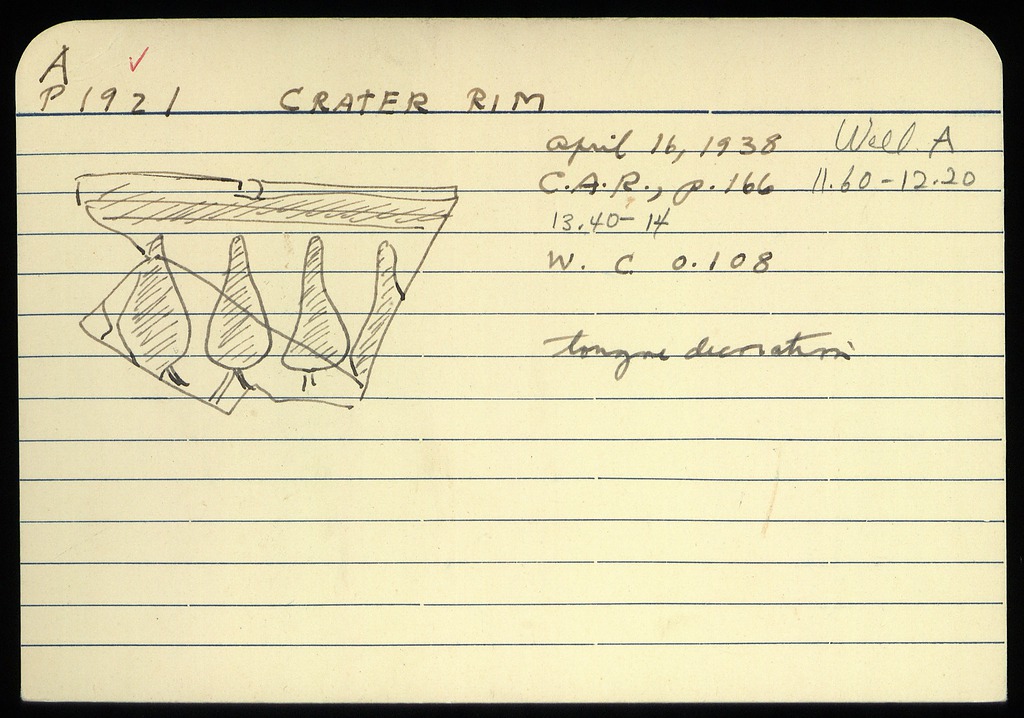 A
P 1921 CRATER RIM
April 16, 1938 Well A
C.A.R., p. 166 11.60-12.20
13.40-14
W. C 0.108
tongue decoration